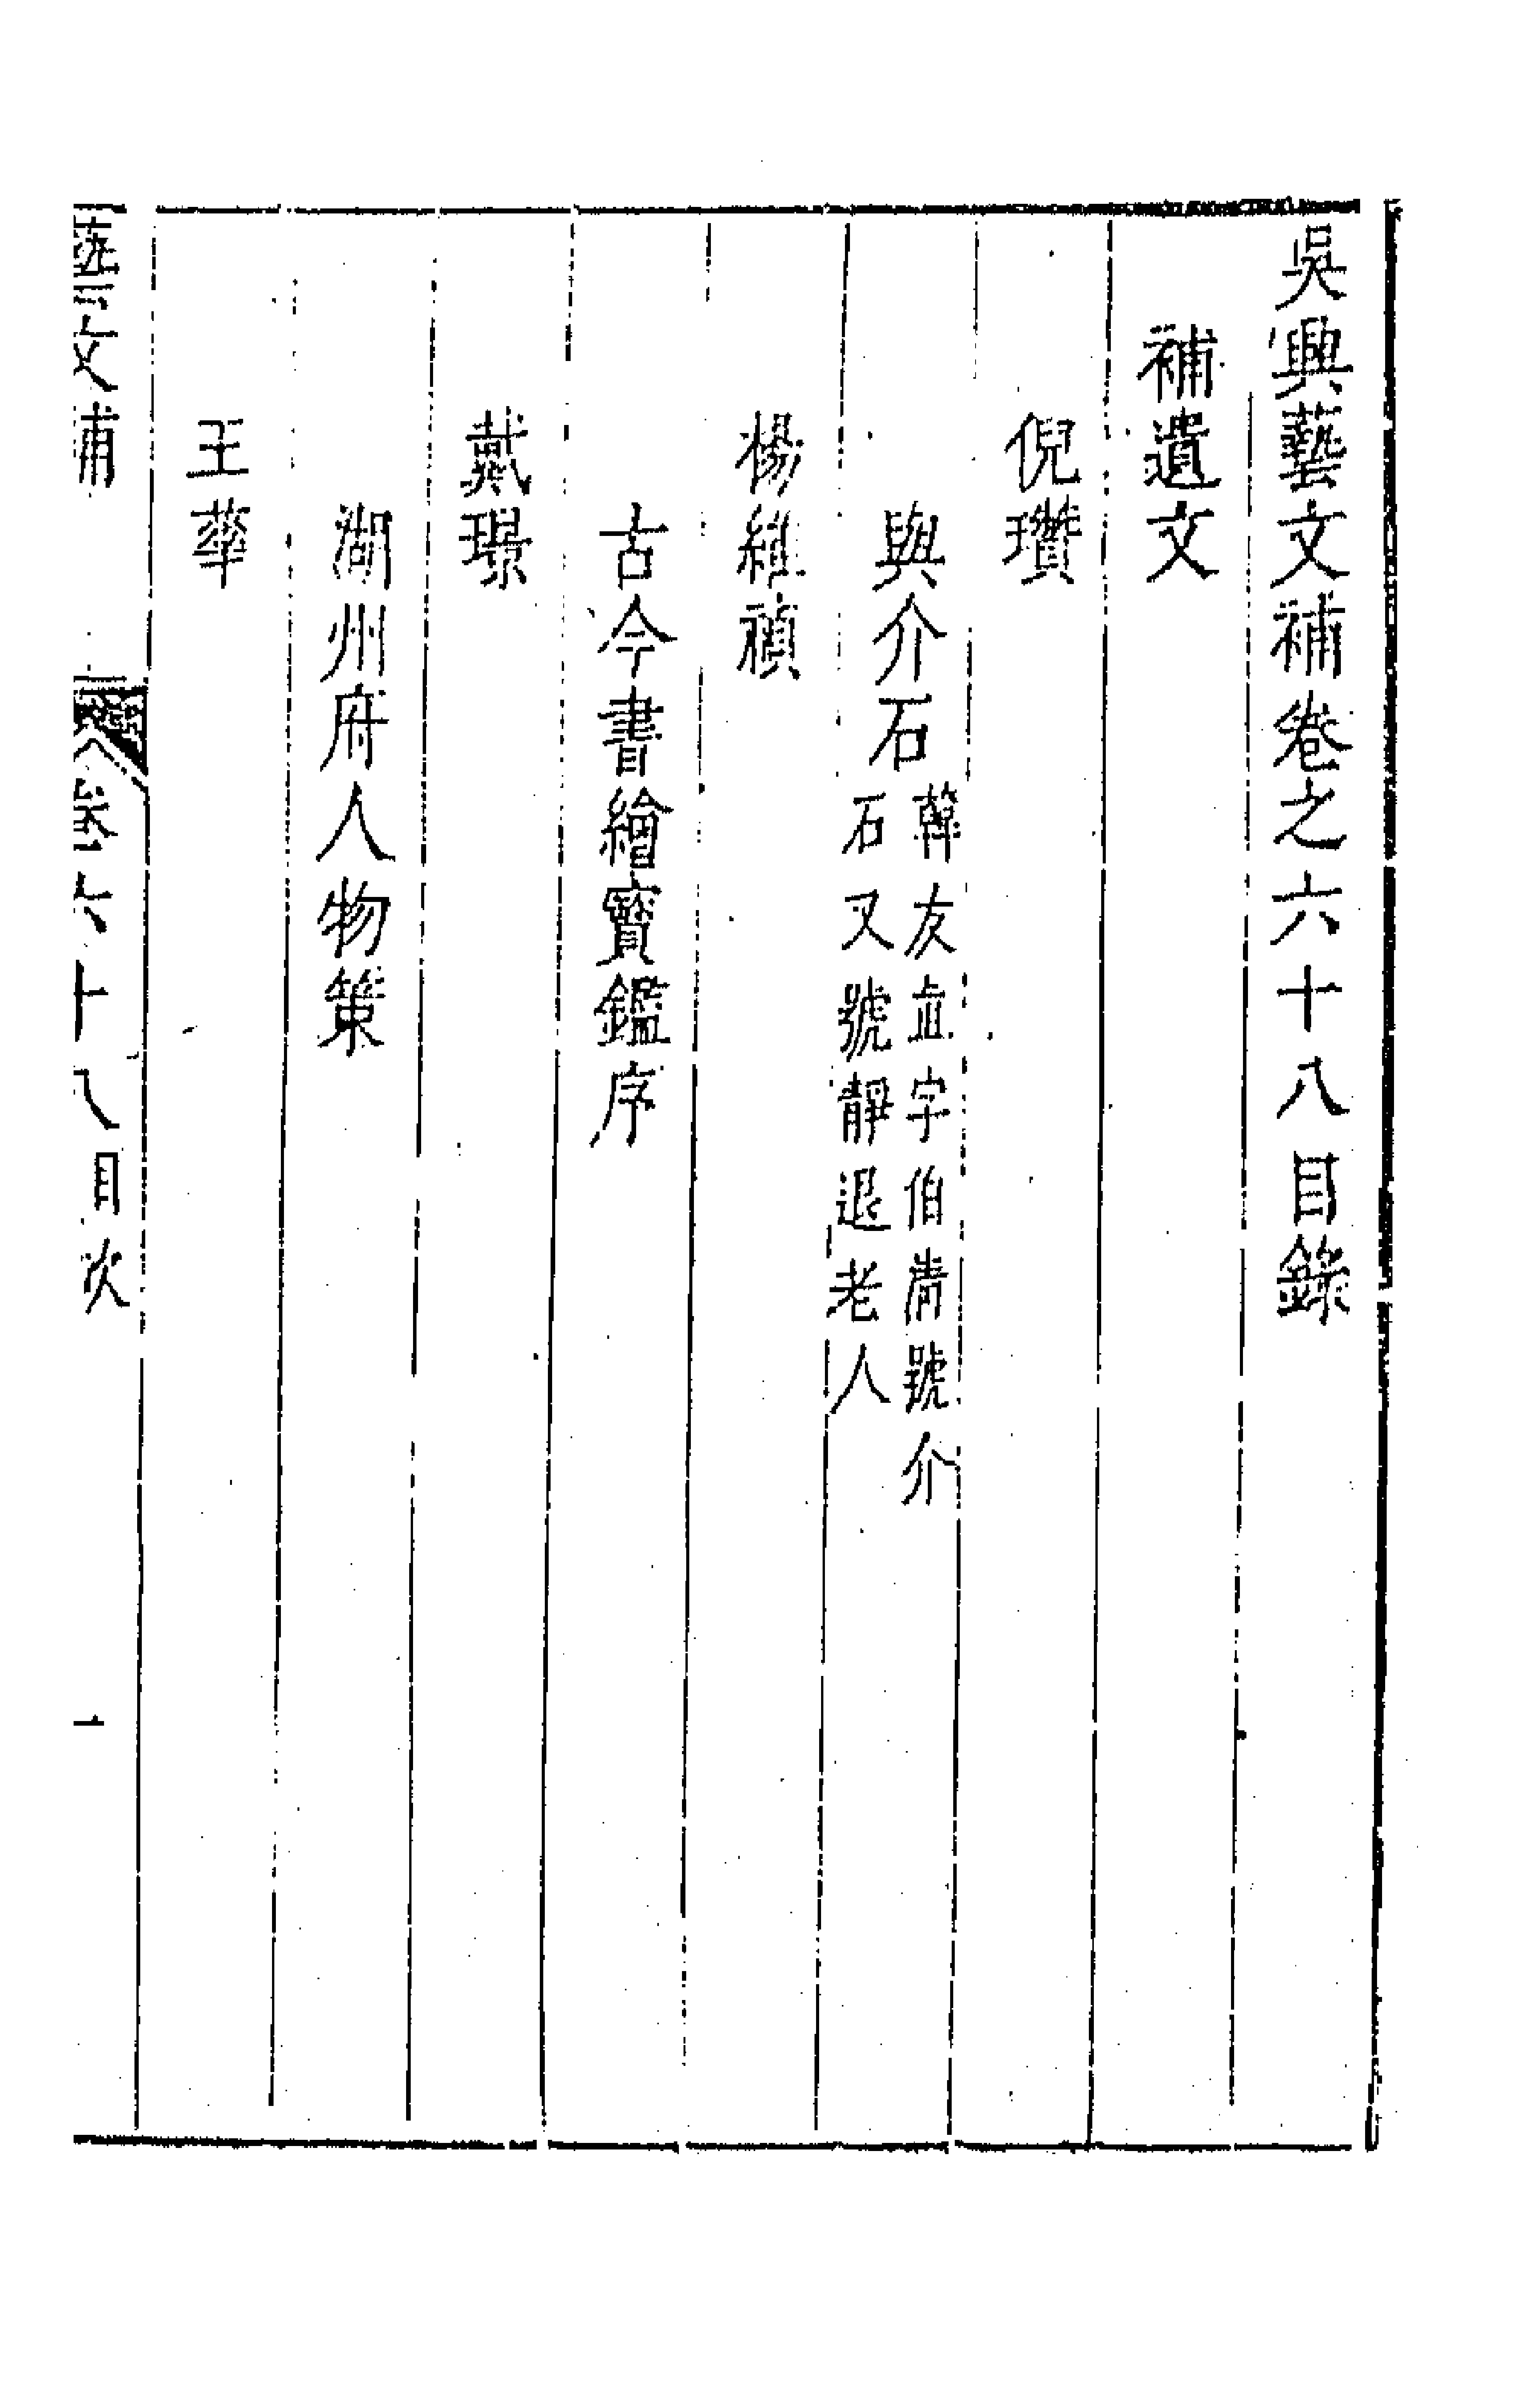 吳興藝文補卷之六十八目錄
補遺文
倪瓚
與介石韓友直字伯清號介
石又號靜退老人
楊維禎
古今書繪寶鑑序
戴璟
湖州府人物策
王華
藝文補 卷六十八目次 一